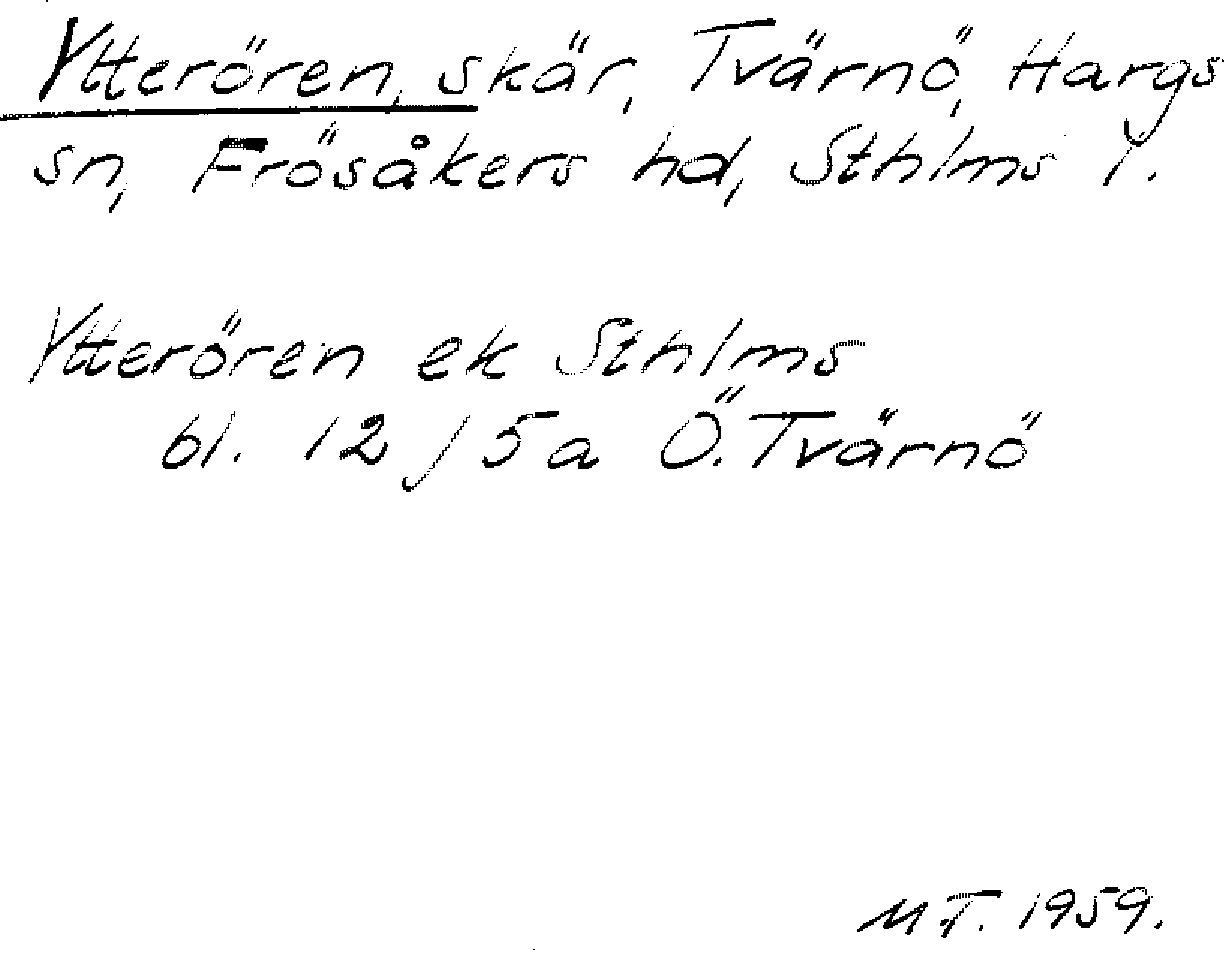 Ytterören, skär, Tvärnö, Hargs
sn, Frösåkers hd, Sthlms l.
Ytterören ek Sthlms
bl. 12 / 5a Ö. Tvärnö
M.T. 1959.